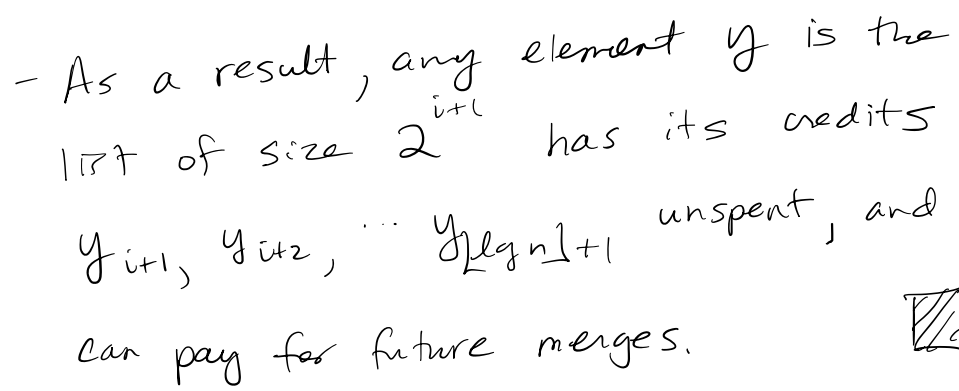 - As a result, any element y is the
list of size 2^{i+1} has its credits
y_{i+1}, y_{i+2}, ... y_{⌊lg n⌋+1} unspent, and
can pay for future merges.